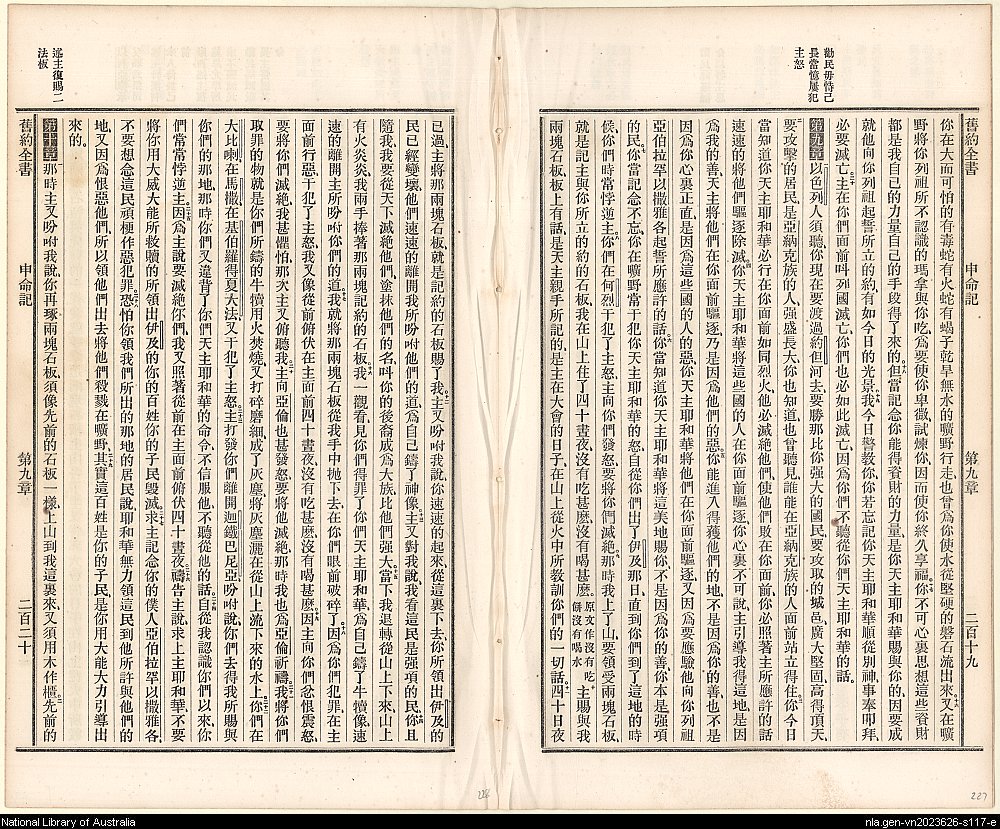 勸民毋恃己
長當憶屢犯
主怒
舊約全書　申命記　第九章　二百十九
你在大而可怕的有毒蛇有火蛇有蝎子乾旱無水的曠野行走也曾爲你使水從堅硬的磐石流出來又在曠
野將你列祖所不認識的瑪拿與你吃爲要使你卑微試煉你因而使你終久享福你不可心裏思想這些貲財
都是我自己的力量自己的手段得了來的但當記念你能得貲財的力量是你天主耶和華賜與你的因要成
就他向你列祖起誓所立的約有如今日的光景我今日警教你你若忘記你天主耶和華順從別神事奉叩拜
必要滅亡主在你們面前呌列國滅亡你們也必如此滅亡因爲你們不聽從你們天主耶和華的話
第九章以色列人須聽你現在要渡過約但河去要勝那比你强大的國民要攻取的城邑廣大堅固高得頂天
要攻擊的居民是亞納克族的人强盛長大你也知道也曾聽見誰能在亞納克族的人面前站立得住你今日
當知道你天主耶和華必行在你面前如同烈火他必滅絶他們使他們敗在你面前你必照著主所應許的話
速速的將他們驅逐除滅你天主耶和華將這些國的人在你面前驅逐你心裏不可說主引導我得這地是因
爲我的善天主將他們在你面前驅逐乃是因爲他們的惡你能進入得獲他們的地不是因爲你的善也不是
因爲你心裏正直是因爲這些國人的惡你天主耶和華將他們在你面前驅逐又因爲要應驗他向你列祖
亞伯拉罕以撒雅各起誓所應許的話你當知道你天主耶和華將這美地賜你不是因爲你的善你本是强項
的民你當記念不忘你在曠野常干犯你天主耶和華的怒自從你們出了伊及那日直到你們到了這地的時
候你們時常悖逆主你們在何烈干犯了主怒主向你們發怒要將你們滅絶那時我上了山要領受兩塊石板
就是記主與你所立的約的石板我在山上住了四十晝夜沒有吃甚麼沒有喝甚麼原文作沒有吃餠沒有喝水主賜與我
兩塊石板板上有話是天主親手所記的是主在大會的日子在山上從火中所教訓你們的一切話四十日夜
述主復賜二
法板
已過主將那兩塊石板就是記約的石板賜了我主又吩咐我說你速速的起來從這裏下去你所領出伊及的
民已經變壞他們速速的離開我所吩咐他們的道爲自己鑄了神像主又對我說我看這民是强項的民你且
隨我我要從天下滅絶他們塗抹他們的名呌你的後裔成爲大族比他們强大當下我退轉從山上下來山上
有火炎炎我兩手捧著那兩塊記約的石板我一觀看見你們得罪了你們天主耶和華爲自己鑄了牛犢像速
速的離開主所吩咐你們的道我就將那兩塊石板從我手中抛下去在你們眼前破碎了因爲你們犯罪在主
面前行惡干犯了主怒我又像從前俯伏在主面前四十晝夜沒有吃甚麼沒有喝甚麼因主向你們忿恨震怒
要將你們滅絶我甚懼怕那次主又俯聽我主向亞倫也甚發怒要將他滅絶那時我也爲亞倫祈禱我將你們
取罪的物就是你們所鑄的牛犢用火焚燒又打碎磨細成了灰塵將灰塵灑在從山上流下來的水上你們在
大比喇在馬撒在基伯羅得夏大法又干犯了主怒主打發你們離開迦鐵巴尼亞吩咐說你們去得我所賜與
你們的那地那時你們又違背了你們天主耶和華的命令不信服他不聽從他的話自從我認識你們以來你
們常常悖逆主因爲主說要滅絶你們我又照著從前在主面前俯伏四十晝夜禱告主說求上主耶和華不要
將你用大威大能所救贖的所領出伊及的你的百姓你的子民毀滅求主記念你的僕人亞伯拉罕以撒雅各
不要想念這民頑梗作惡犯罪恐怕你領我們所出的那地的居民說耶和華無力領這民到他所許與他們的
地又因爲恨惡他們所以領他們出去將他們殺戮在曠野其實這百姓是你的子民是你用大能大力引導出
來的
第十章那時主又吩咐我說你再琢兩塊石板須像先前的石板一樣上山到我這裏來又須用木作櫃先前的
舊約全書　申命記　第九章　二百二十
226
227
National Library of Australia
nla.gen-vn2023626-s117-e